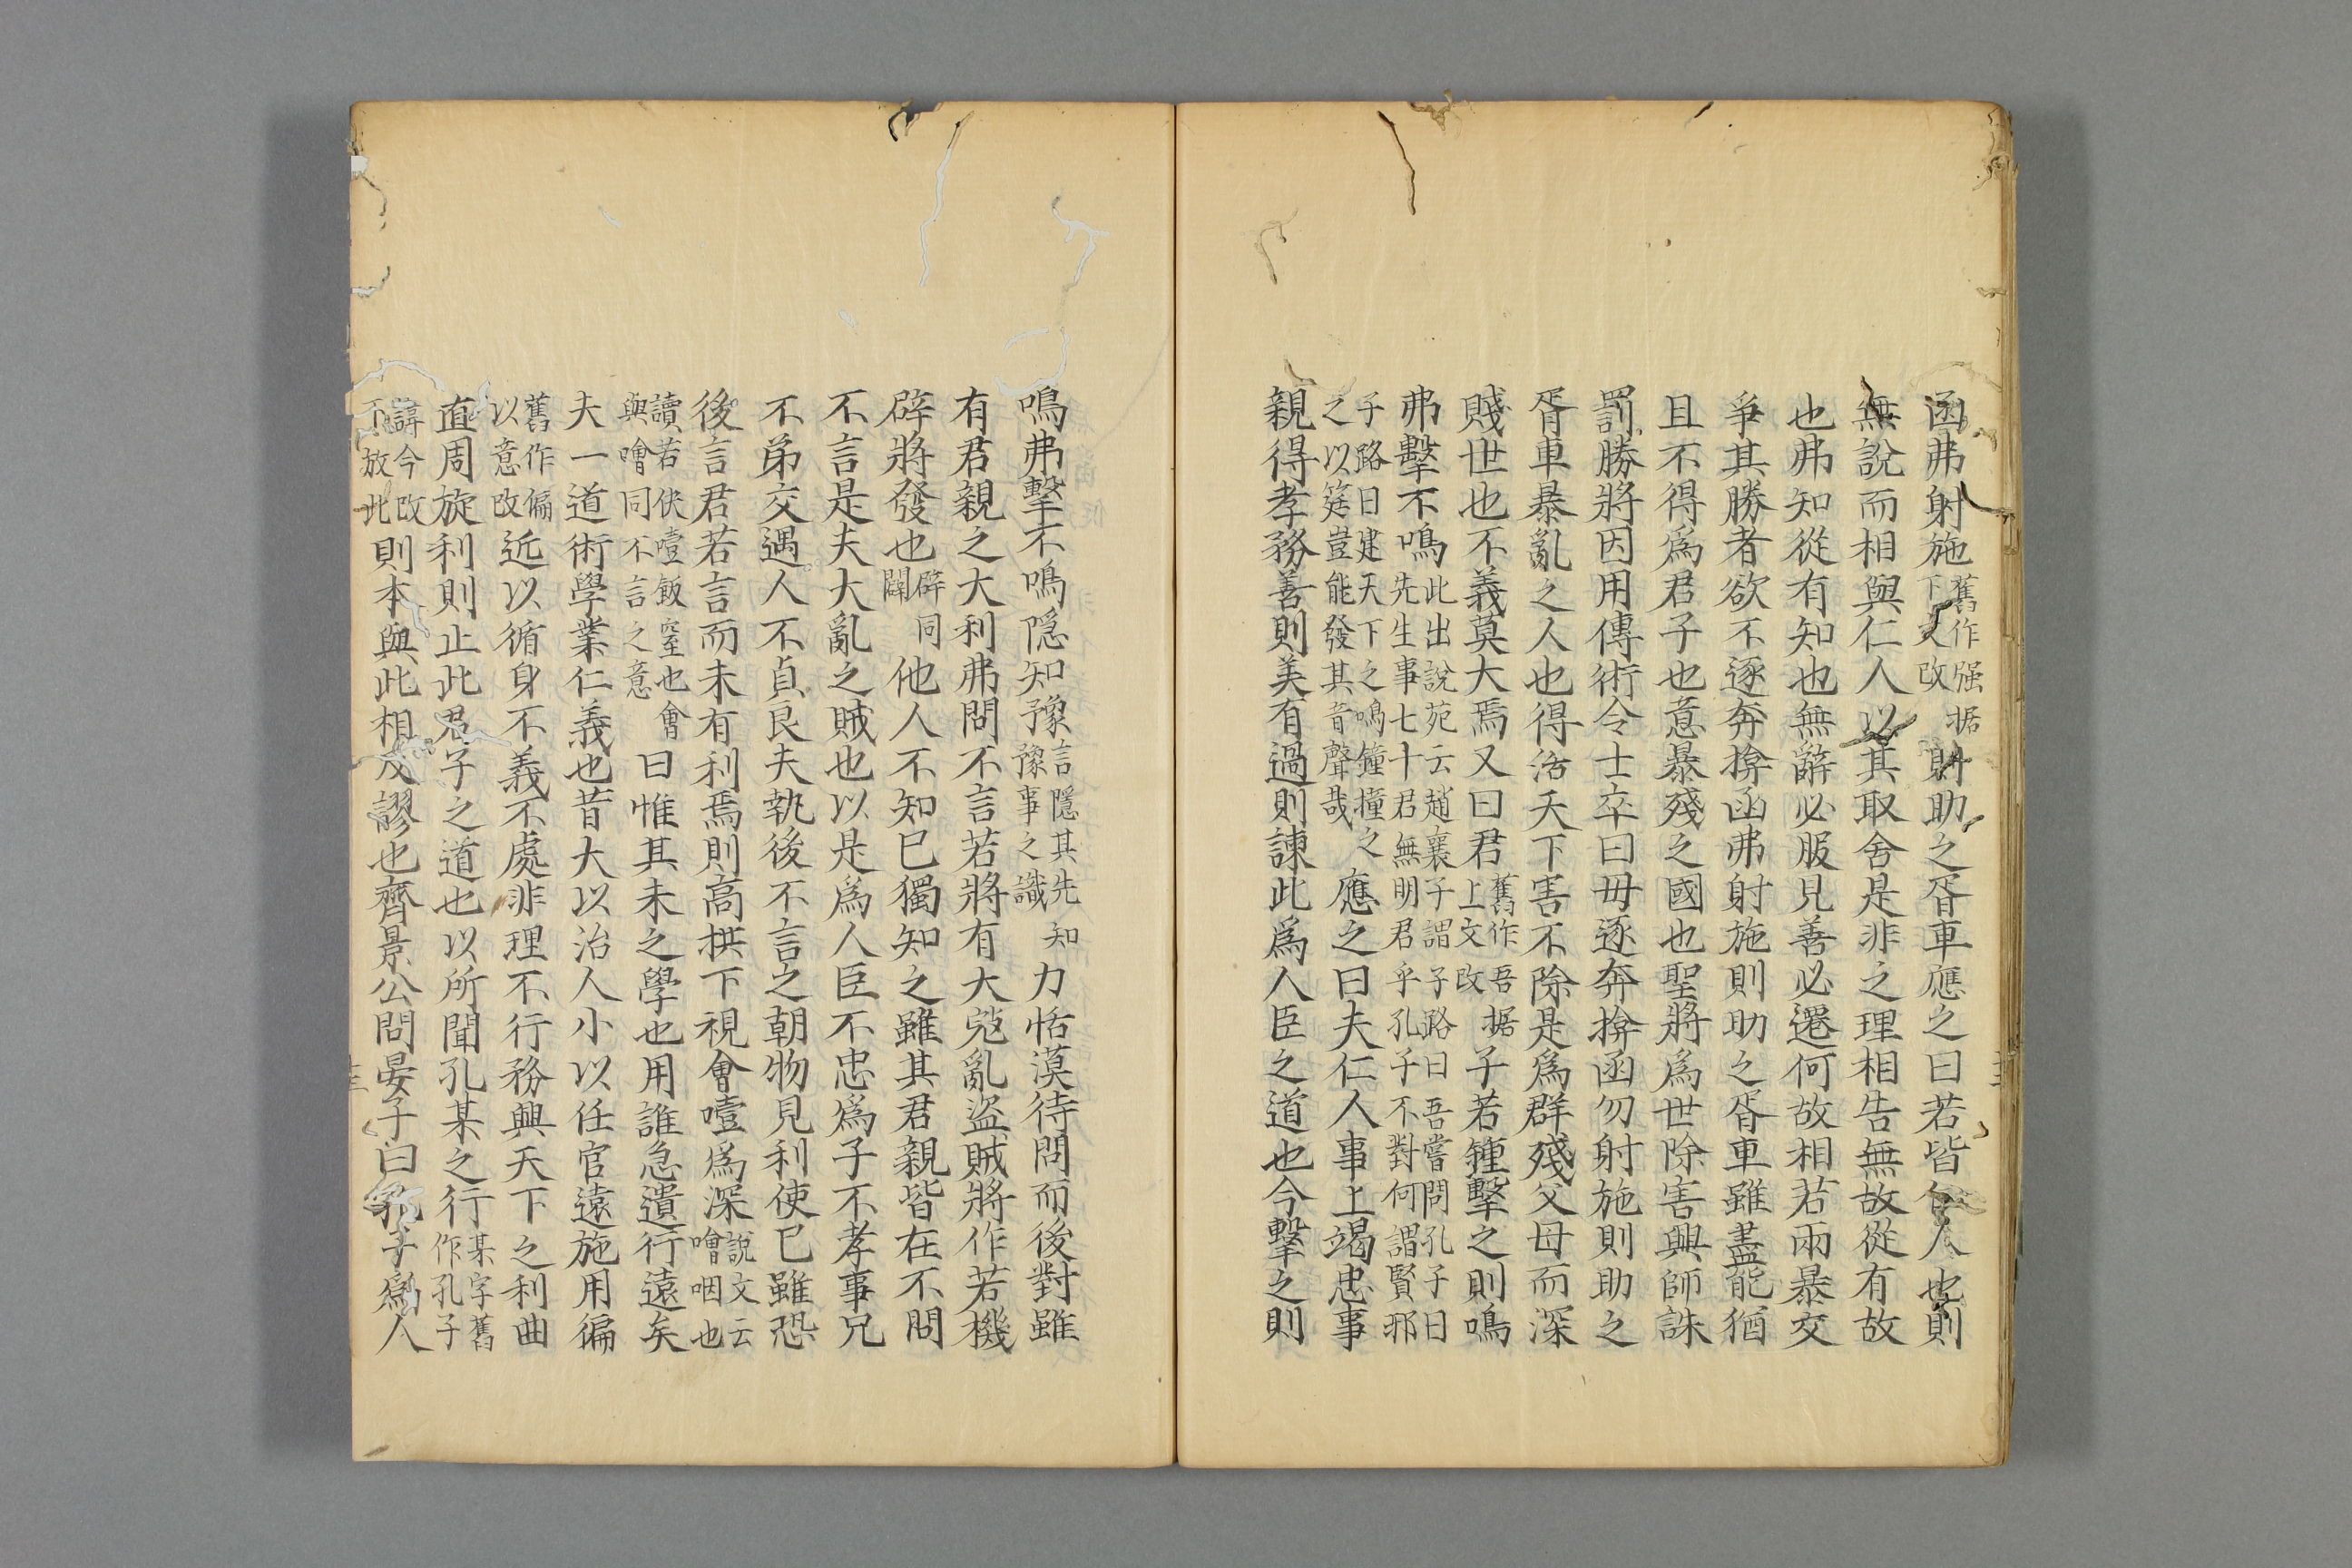 函弗射施舊作强据下文改則助之胥車應之曰若皆仁人也則
無說而相與仁人以其取舍是非之理相告無故從有故
也弗知從有知也無辭必服見善必遷何故相若兩暴交
爭其勝者欲不逐奔揜函弗射施則助之胥車雖盡能猶
且不得爲君子也意暴殘之國也聖將爲世除害興師誅
罰勝將因用傳術令士卒曰毋逐奔揜函勿射施則助之
胥車暴亂之人也得活天下害不除是爲群殘父母而深
賤世也不義莫大焉又曰君舊作吾据上文改子若鍾擊之則鳴
弗擊不鳴此出說苑云趙襄子謂子路曰吾嘗問孔子曰先生事七十君無明君乎孔子不對何謂賢邪
子路曰建天下之鳴鐘撞之之以筳豈能發其音聲哉應之曰夫仁人事上竭忠事
親得孝務善則美有過則諫此爲人臣之道也今擊之則
鳴弗擊不鳴隱知豫言隱其先知豫事之識力恬漠待問而後對雖
有君親之大利弗問不言若將有大㓂亂盜賊將作若機
辟將發也辟同闢他人不知已獨知之雖其君親皆在不問
不言是夫大亂之賊也以是爲人臣不忠爲子不孝事兄
不弟交遇人不貞良夫執後不言之朝物見利使已雖恐
後言君若言而未有利焉則高拱下視會噎爲深說文云噲咽也
讀若快噎飯窒也會與噲同不言之意曰惟其未之學也用誰急遺行遠矣
夫一道術學業仁義也昔大以治人小以任官遠施用偏
舊作偏以意改近以循身不義不處非理不行務興天下之利曲
直周旋利則止此君子之道也以所聞孔某之行某字舊作孔子
諱今改下放此則本與此相反謬也齊景公問晏子曰孔子爲人